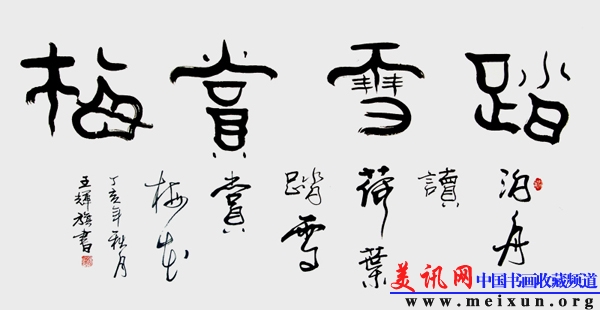 踏雪賞梅
泊舟
讀
荷葉
踏雪
賞
梅花
丁亥年秋月
王輝旗書
美讯网 中国书画收藏频道
www.meixun.org